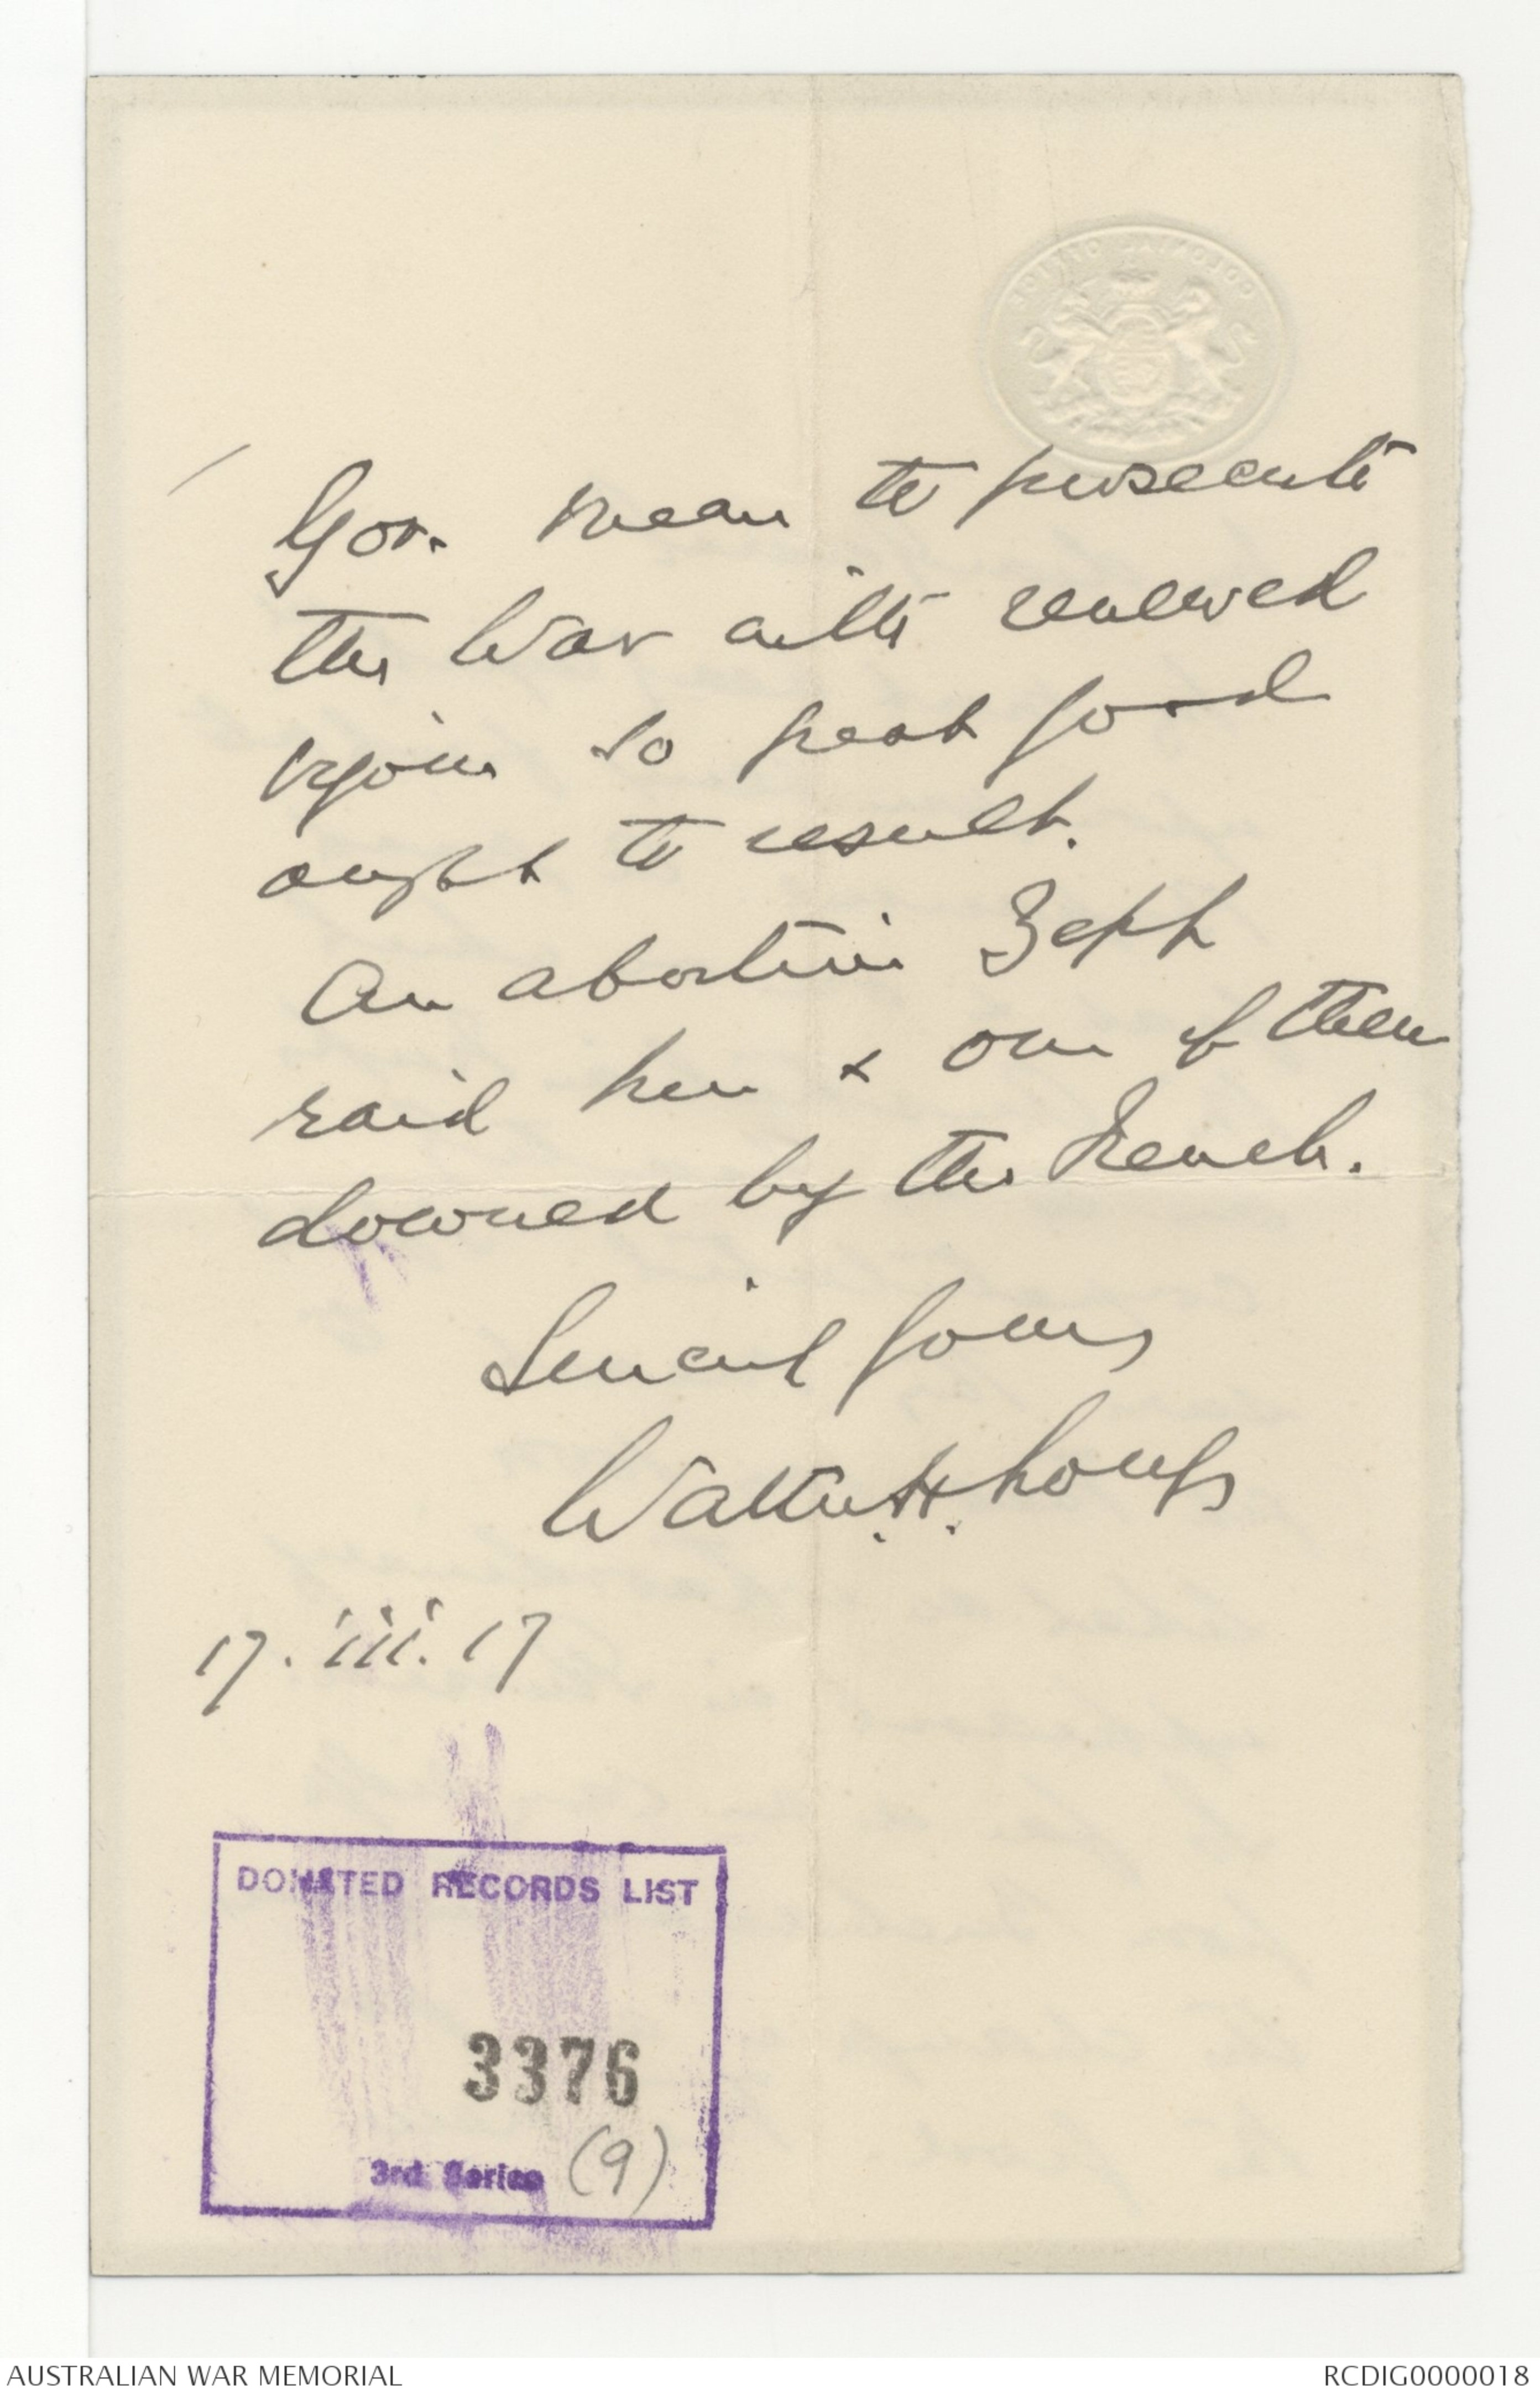 COLONIAL OFFICE
Gov. mean to prosecute
the War with renewed
vigour so great good
ought to result.
An abortive Zepp
raid here & one of them
downed by the French.
Sincerely Yours
Walter H. Long
17. iii. 17
DONATED RECORDS LIST
3376
3rd Series (9)
AUSTRALIAN WAR MEMORIAL
RCDIG0000018